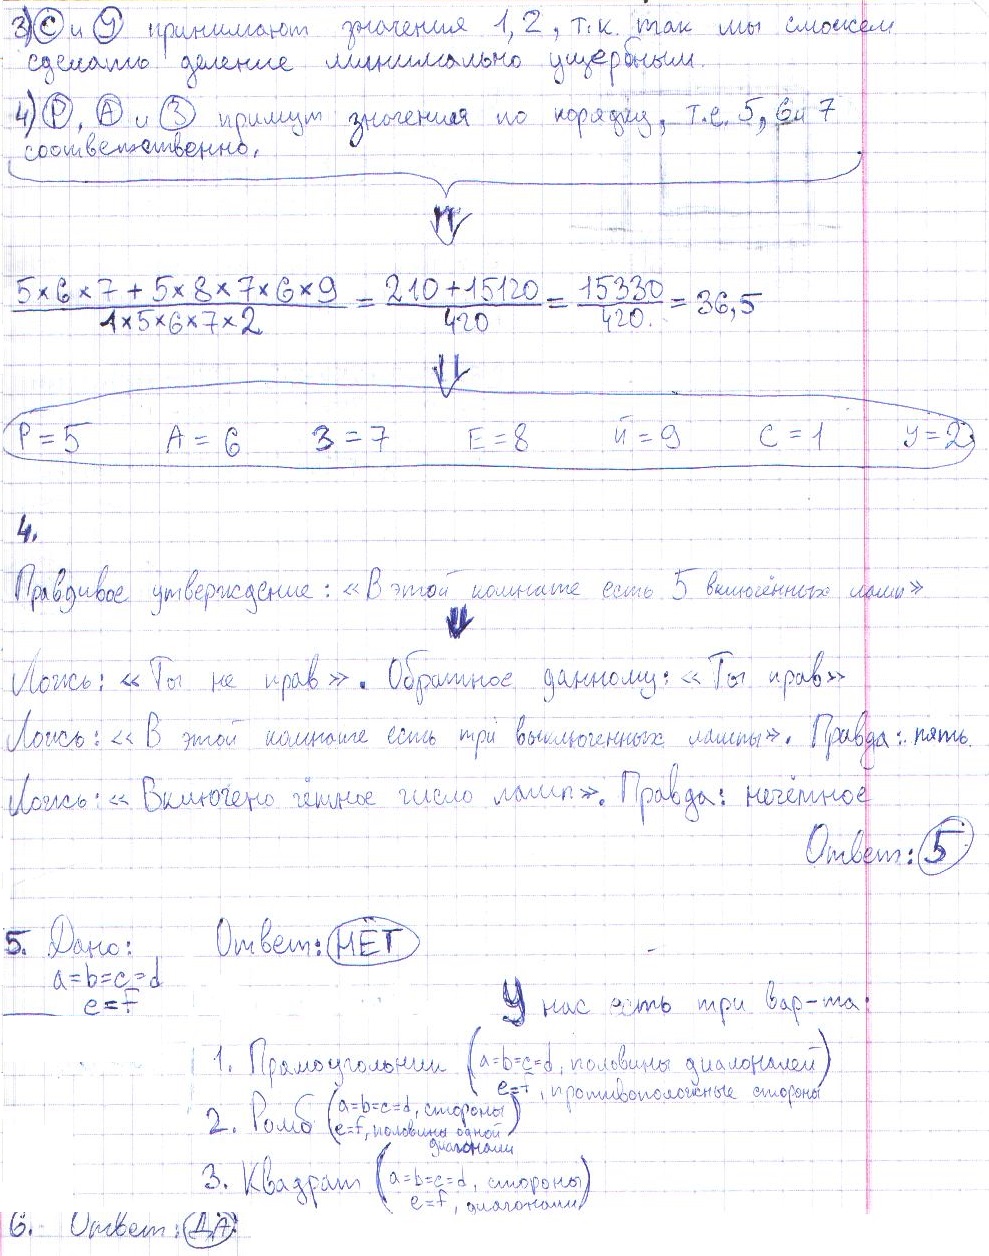 3) С и У принимают значения 1, 2, т.к. так мы сможем
сделать деление минимально ущербным.
4) Р, А и З примут значения по порядку, т.е. 5, 6 и 7
соответственно.
5×6×7+5×8×7×6×9 / 1×5×6×7×2 = 210+15120 / 420 = 15330 / 420. = 36,5
Р=5 А=6 З=7 Е=8 Й=9 С=1 У=2
4.
Правдивое утверждение: «В этой комнате есть 5 включённых ламп»
Ложь: «Ты не прав». Обратное данному: «Ты прав»
Ложь: «В этой комнате есть три выключенных лампы». Правда: пять.
Ложь: «Включено чётное число ламп». Правда: нечётное
Ответ: 5
5. Дано: Ответ: НЕТ
a=b=c=d
e=f
У нас есть три вар-та:
1. Прямоугольник (a=b=c=d, половины диагоналей)
e=f, противоположные стороны
2. Ромб (a=b=c=d, стороны)
e=f, половины одной
диагонали
3. Квадрат (a=b=c=d, стороны)
e=f, диагонали
6. Ответ: ДА